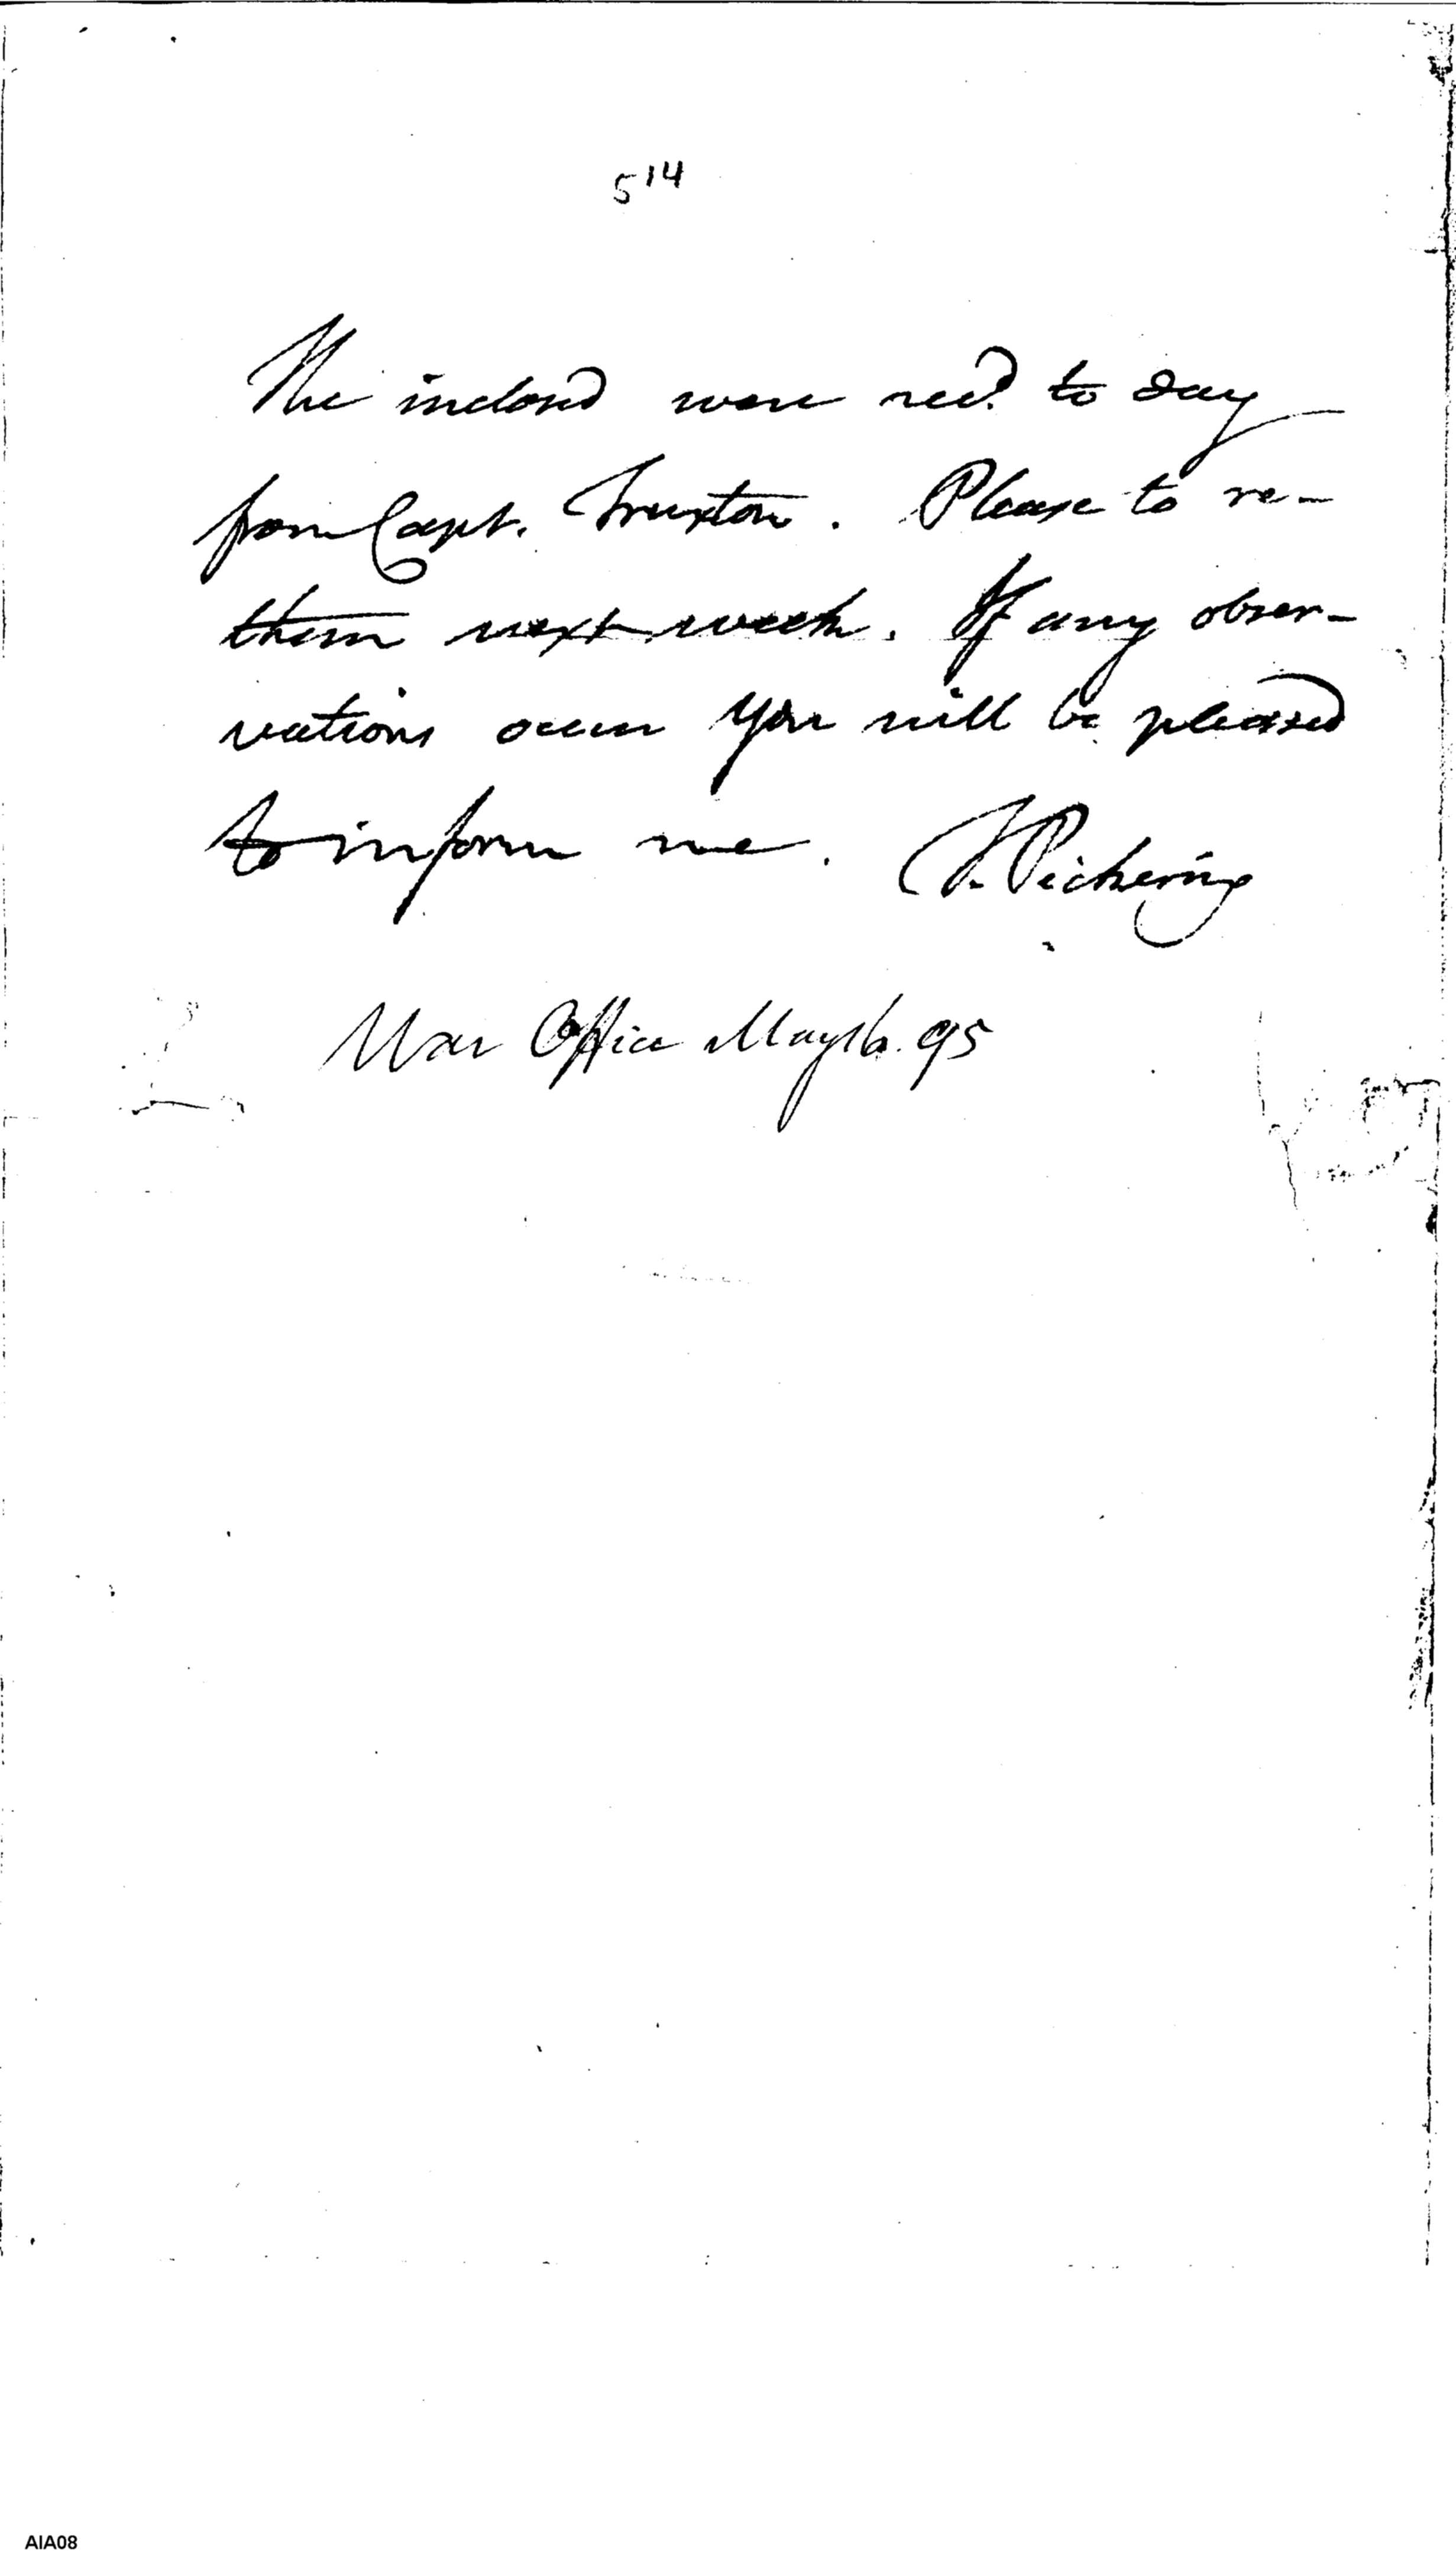 514
The inclosed were recd. to day
from Capt. Truxton. Please to re-
them next week. If any obser-
vations occur you will be pleased
to inform me. T. Pickering
War Office May 16. 95
AIA08